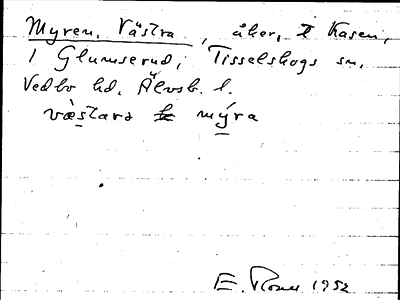 Myren, Västra, åker, t Kasen,
1 Glumserud, Tisselskogs sn.
Vedbo hd. Älvsb. l.
væstara mýra
E. Rosell 1952